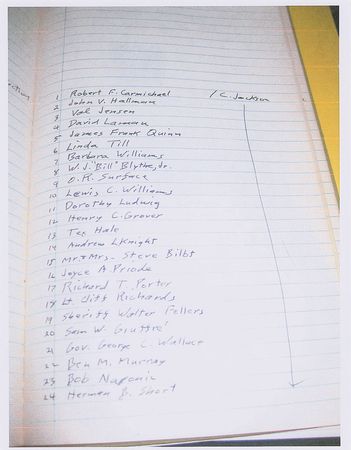 1 Robert F. Carmichael / C. Jackson
2 John V. Hallman
3 Val Jensen
4 David Larman
5 James Frank Quinn
6 Linda Till
7 Barbara Williams
8 W. J. "Bill" Blythe, Jr.
9 O. R. Surface
10 Lewis C. Williams
11 Dorothy Ludwig
12 Henry C. Grover
13 Tex Hale
14 Andrew L Knight
15 Mr + Mrs. Steve Bilbt
16 Joyce A Priode
17 Richard T. Porter
18 Lt. Cliff Richards
19 Sheriff Walter Fellers
20 Sam W. Giuffré
21 Gov. George C. Wallace
22 Ben M. Murray
23 Bob
24 Herman B. Short